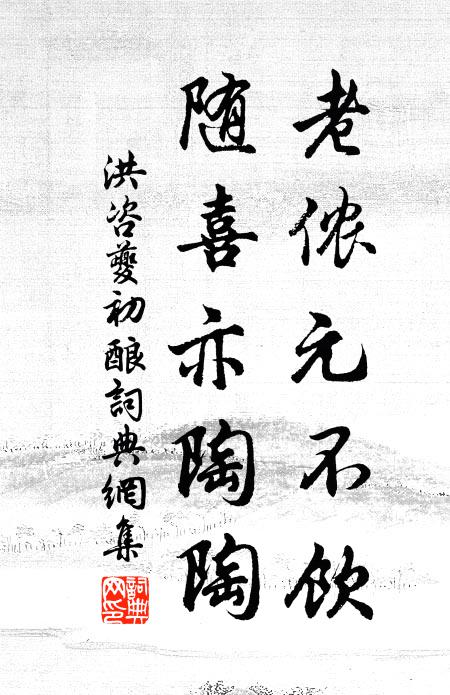 老侬元不饮
随喜亦陶陶
洪咨夔初酿詞典網集
詞典网印